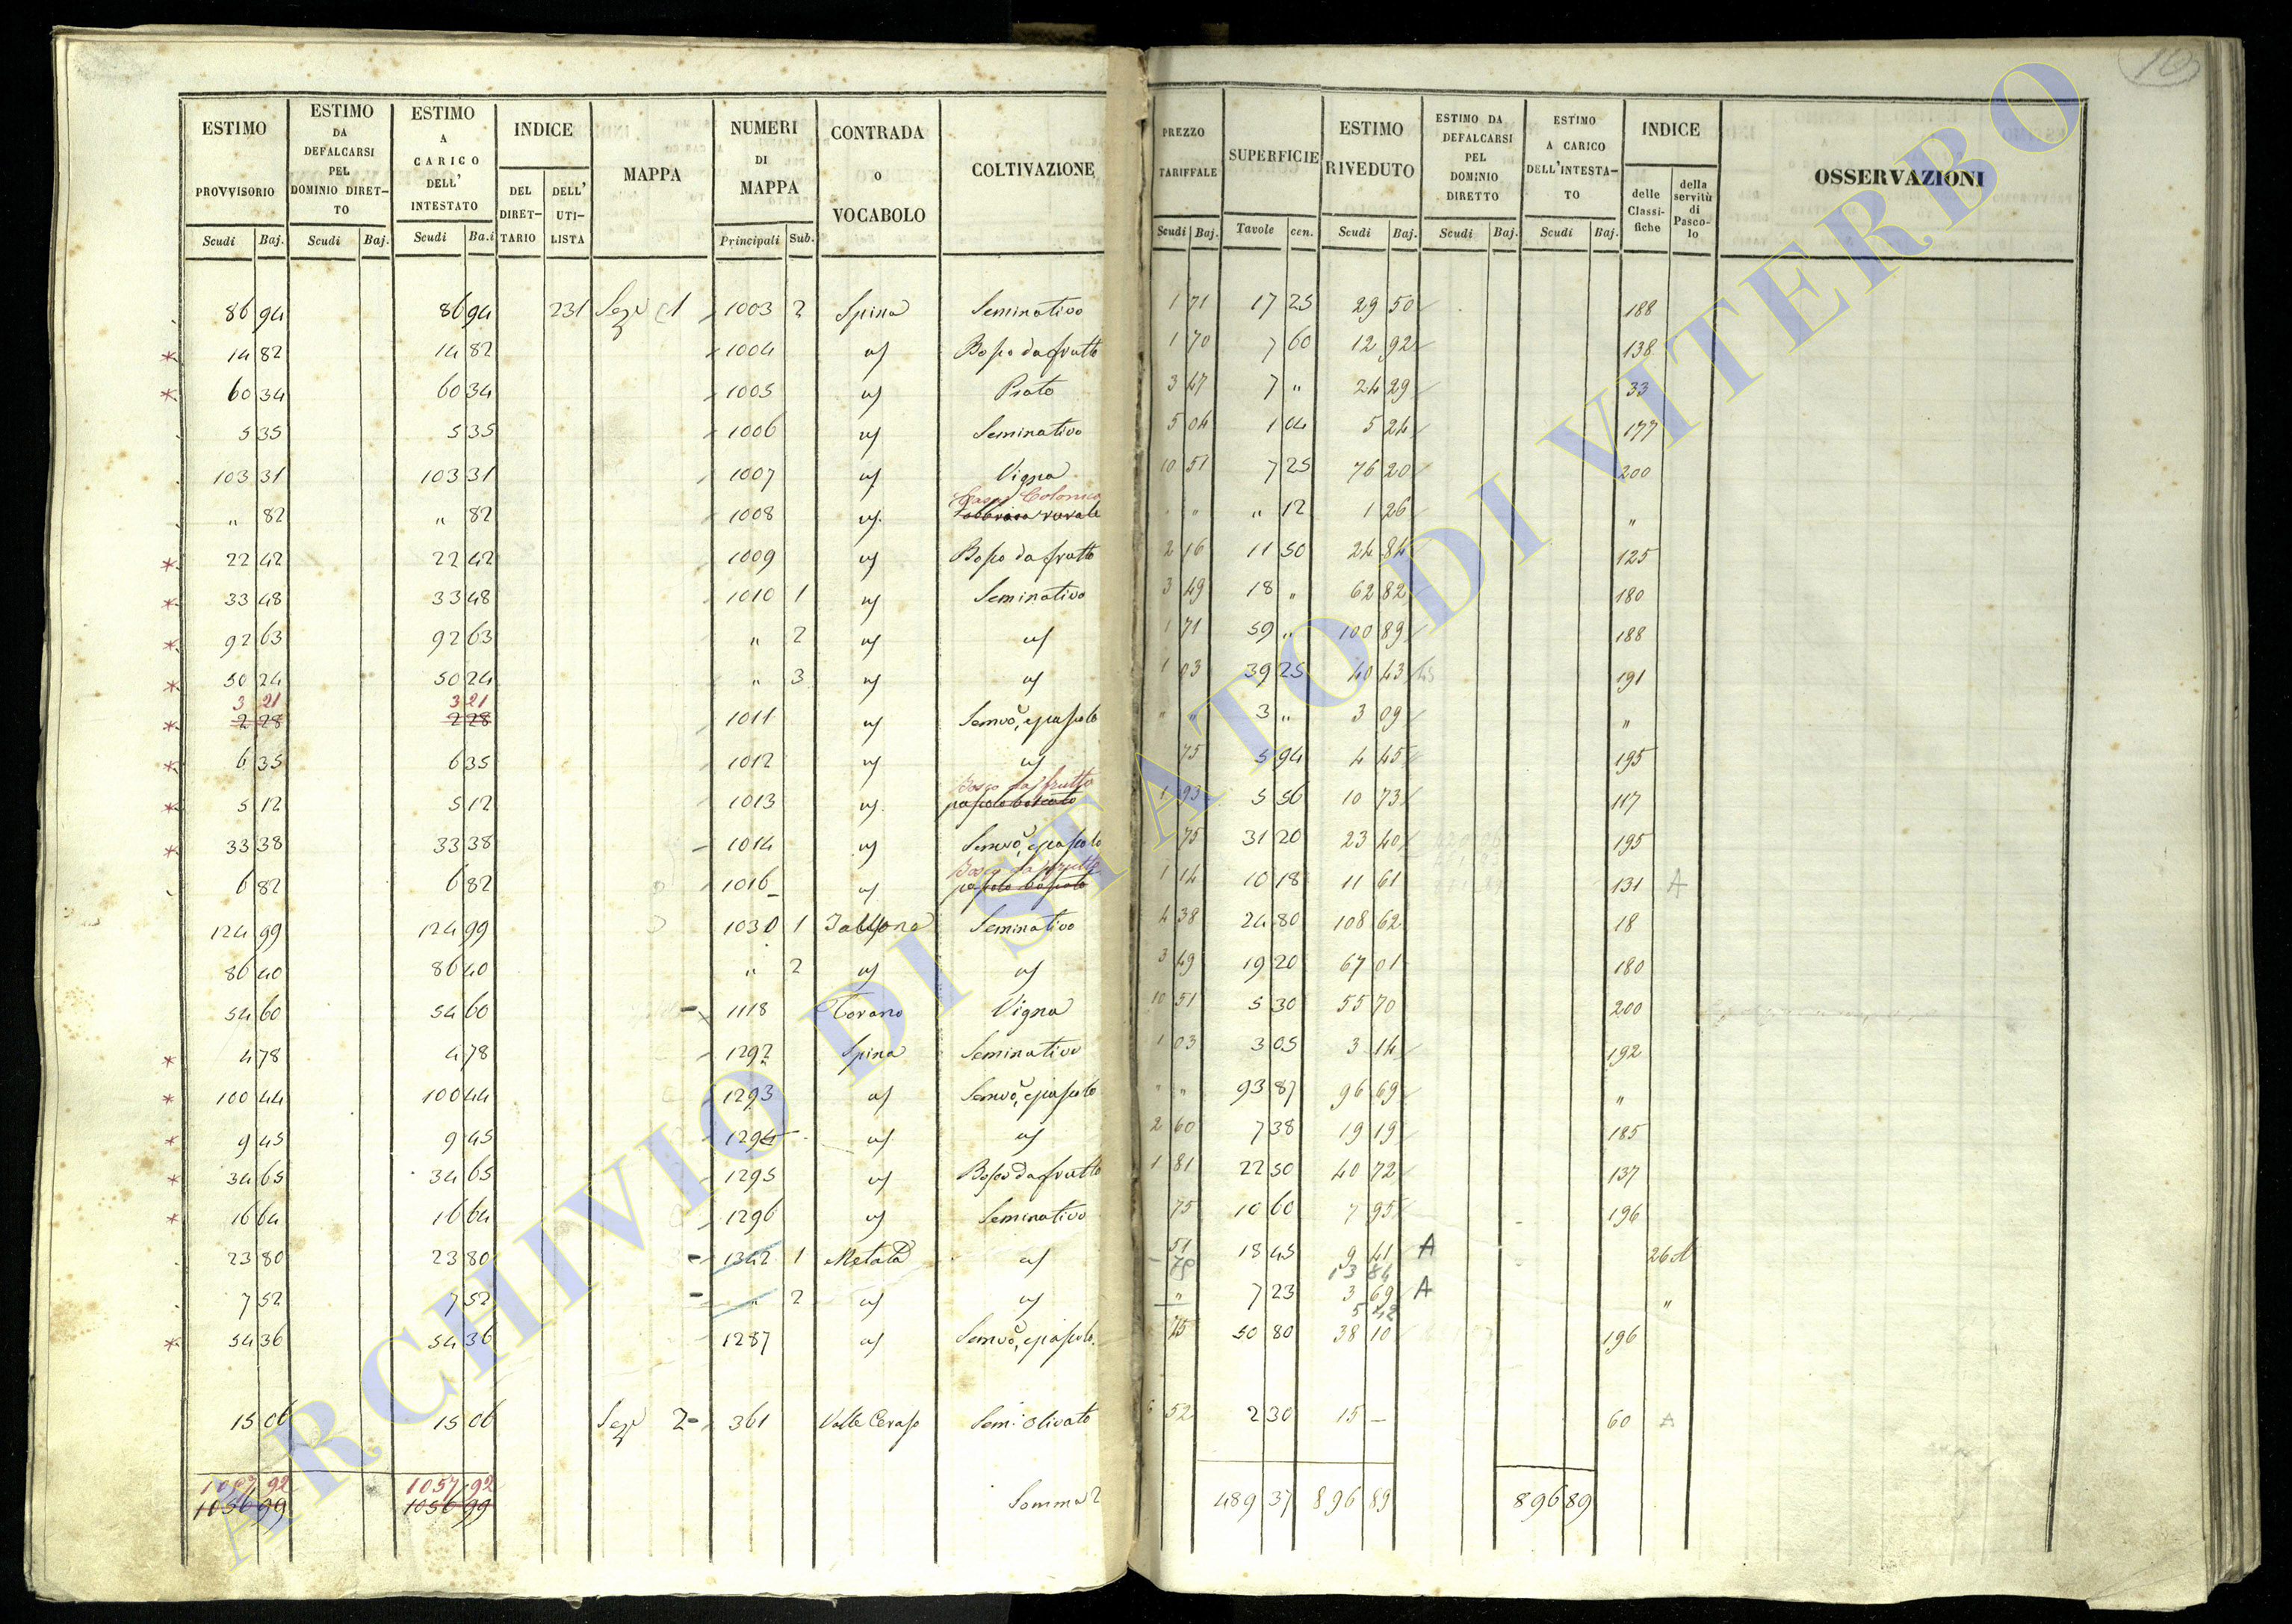 16
ESTIMO PROVVISORIO | ESTIMO DA DEFALCARSI PEL DOMINIO DIRETTO | ESTIMO A CARICO DELL' INTESTATO | INDICE | MAPPA | NUMERI DI MAPPA | CONTRADA O VOCABOLO | COLTIVAZIONE | PREZZO TARIFFALE | SUPERFICIE | ESTIMO RIVEDUTO | ESTIMO DA DEFALCARSI PEL DOMINIO DIRETTO | ESTIMO A CARICO DELL'INTESTATO | INDICE | OSSERVAZIONI
Scudi | Baj. | Scudi | Baj. | Scudi | Ba.i | DEL DIRETTARIO | DELL' UTILISTA | Principali | Sub. | Scudi | Baj. | Tavole | cen. | Scudi | Baj. | Scudi | Baj. | Scudi | Baj. | delle Classifiche | della servitù di Pascolo
86 94 | 86 94 | 231 | Sez 1 | 1003 | 2 | Spina | Seminativo | 1 71 | 17 25 | 29 50 | 188
* 14 82 | 14 82 | 1004 | id | Bosco da frutto | 1 70 | 7 60 | 12 92 | 138
* 60 34 | 60 34 | 1005 | id | Prato | 3 47 | 7 " | 24 29 | 33
5 35 | 5 35 | 1006 | id | Seminativo | 5 04 | 1 04 | 5 24 | 177
103 31 | 103 31 | 1007 | id | Vigna | 10 51 | 7 25 | 76 20 | 200
Casa Colonica
" 82 | " 82 | 1008 | id. | Fabbrica rurale | " " | " 12 | 1 26 | "
* 22 42 | 22 42 | 1009 | id | Bosco da frutto | 2 16 | 11 50 | 24 84 | 125
* 33 48 | 33 48 | 1010 | 1 | id | Seminativo | 3 49 | 18 " | 62 82 | 180
* 92 63 | 92 63 | " | 2 | id | id | 1 71 | 59 " | 100 89 | 188
* 50 24 | 50 24 | " | 3 | id | id | 1 03 | 39 25 | 40 43 | 191
3 21 | 3 21
* 2 28 | 2 28 | 1011 | id | Semvo, e pascolo | " " | 3 " | 3 09 | "
* 6 35 | 6 35 | 1012 | id | id | 75 | 5 94 | 4 45 | 195
Bosco da frutto
* 5 12 | 5 12 | 1013 | id. | pascolo boscato | 1 93 | 5 56 | 10 73 | 117
* 33 38 | 33 38 | 1014 | id | Semvo, e pascolo | 75 | 31 20 | 23 40 | 195
Bosco da frutto
6 82 | 6 82 | 1016 | id | pascolo boscato | 1 14 | 10 18 | 11 61 | 131 | A
124 99 | 124 99 | 1030 | 1 | Seminativo | 4 38 | 24 80 | 108 62 | 18
86 40 | 86 40 | " | 2 | id | id | 3 49 | 19 20 | 67 01 | 180
54 60 | 54 60 | 1118 | Torano | Vigna | 10 51 | 5 30 | 55 70 | 200
* 4 78 | 4 78 | 1292 | Spina | Seminativo | 1 03 | 3 05 | 3 14 | 192
* 100 44 | 100 44 | 1293 | id | Semvo, e pascolo | " " | 93 87 | 96 69 | "
* 9 45 | 9 45 | 1294 | id | id | 2 60 | 7 38 | 19 19 | 185
* 34 65 | 34 65 | 1295 | id | Bosco da frutto | 1 81 | 22 50 | 40 72 | 137
* 16 64 | 16 64 | 1296 | id | Seminativo | 75 | 10 60 | 7 95 | 196
23 80 | 23 80 | 1342 | 1 | Metata | id | 51 | 18 45 | 9 41 | A | 26
75 | 13 84
7 52 | 7 52 | " | 2 | id | id | " | 7 23 | 3 69 | A | "
5 42
* 54 36 | 54 36 | 1287 | id | Semvo, e pascolo. | 75 | 50 80 | 38 10 | 196
15 06 | 15 06 | Sez 2 | 361 | Valle Ceraso | Sem: olivato | 6 52 | 2 30 | 15 — | 60 | A
1057 92 | 1057 92
1056 99 | 1056 99 | Somma | 489 37 | 896 89 | 896 89
ARCHIVIO DI STATO DI VITERBO